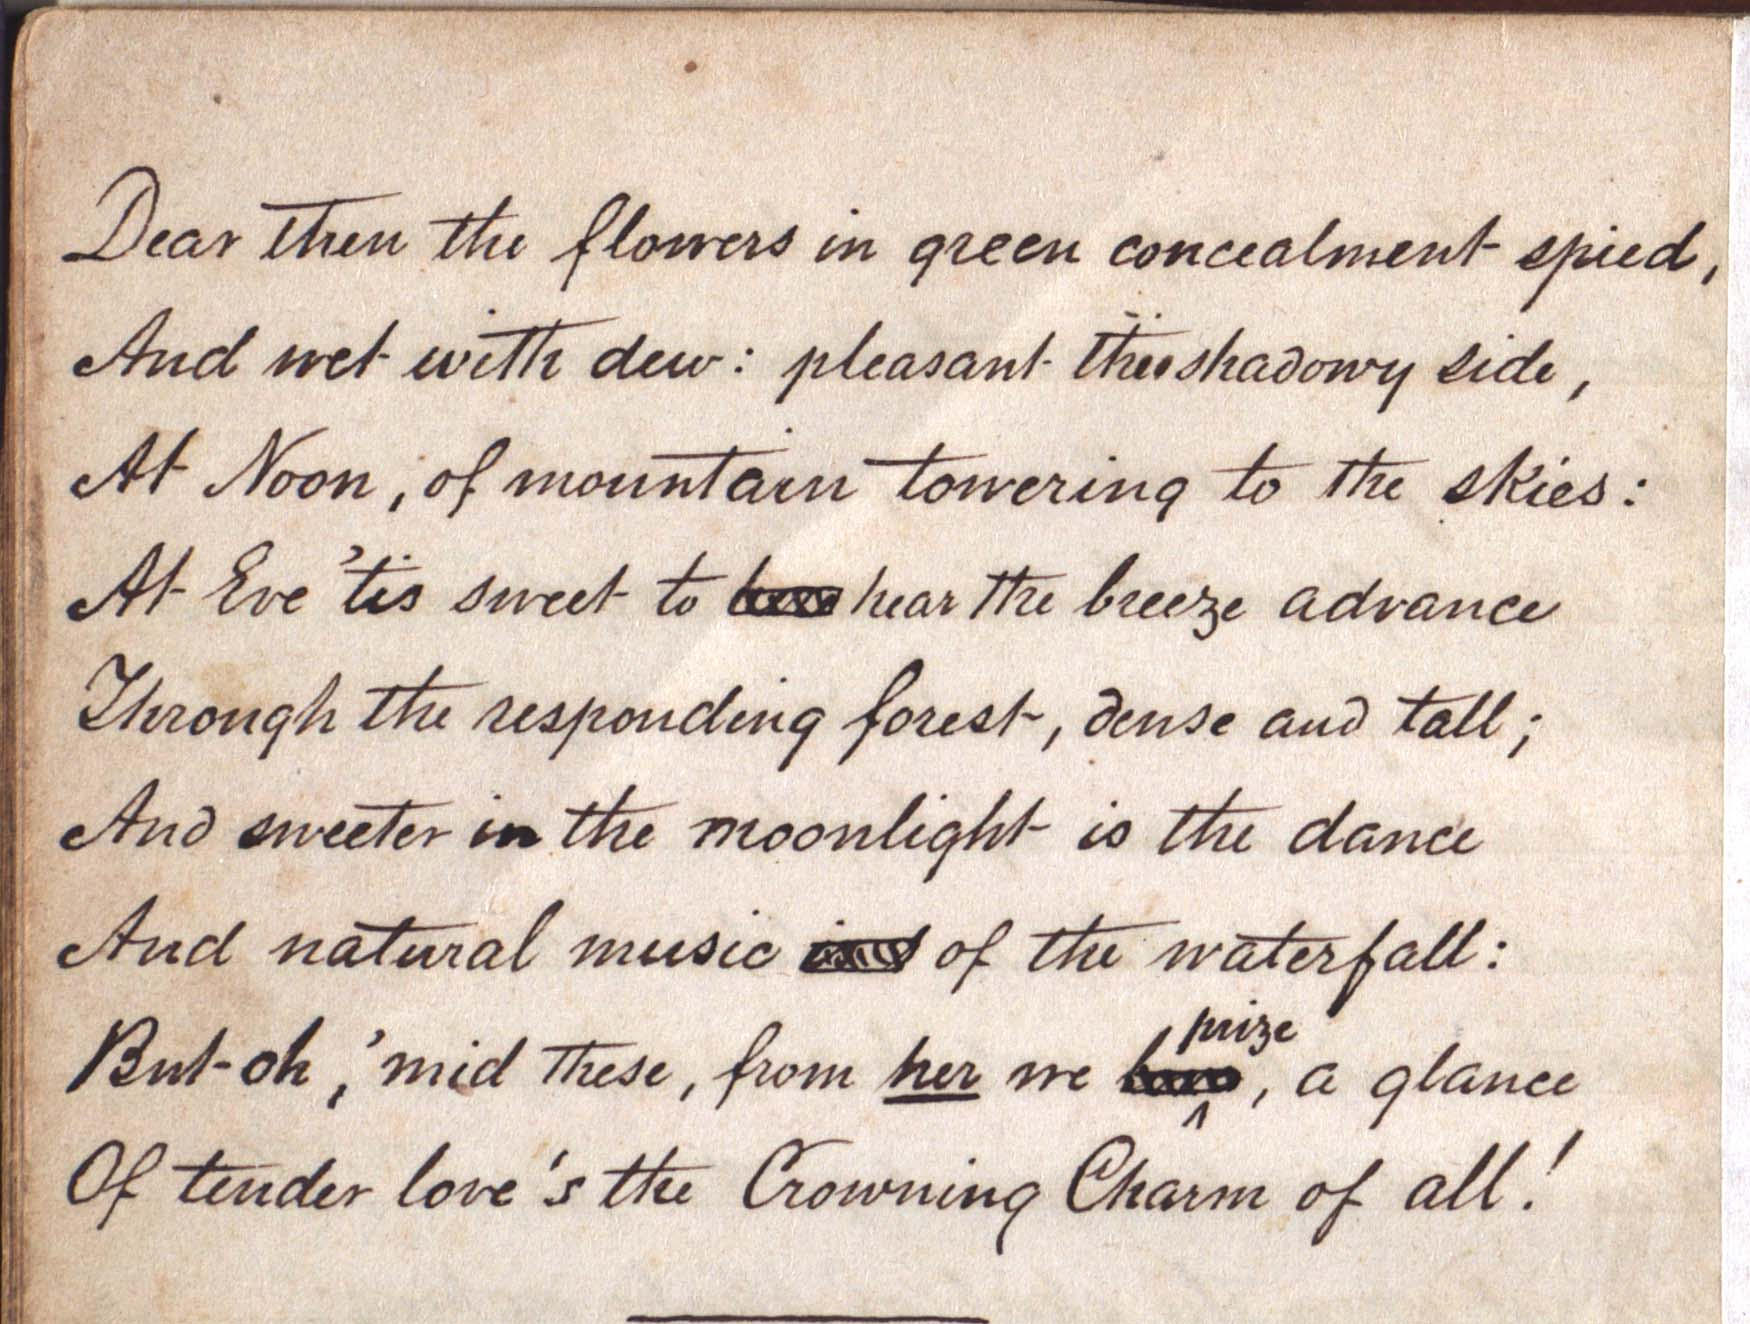 Dear then the flowers in green concealment spied,
And wet with dew: pleasant the shadowy side,
At Noon, of mountain towering to the skies:
At Eve 'tis sweet to hear the breeze advance
Through the responding forest, dense and tall;
And sweeter in the moonlight is the dance
And natural music of the waterfall:
But oh, 'mid these, from her we prize, a glance
Of tender love's the Crowning Charm of all!